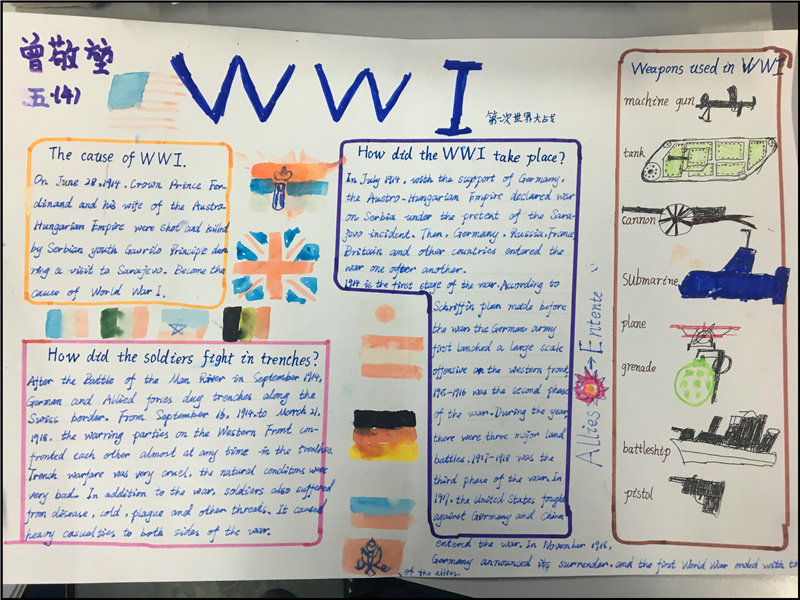 曾敬堃
五(4)
WWI
第一次世界大战
The cause of WWI.
On June 28.1914. Crown Prince Fer-
dinand and his wife of the Austro-
Hungarian Empire were shot and killed
by Serbian youth Gawrilo Principe du-
ring a visit to Sarajevo. Become the
cause of World War I.
How did the soldiers fight in trenches?
After the Battle of the Man River in September 1914,
German and Allied forces dug trenches along the
Swiss border. From September 16, 1914.to March 21.
1918. the warring parties on the Western Front con-
fronted each other almost at any time in the trenches.
Trench warfare was very cruel, the natural conditons were
very bad. In addition to the war, soldiers also suffered
from disease, cold, plague and other threats. It caused
heavy casualties to both sides of the war.
How did the WWI take place?
In July 1914, with the support of Germany,
the Austro-Hungarian Empire declared war
on Serbia under the pretext of the Sara-
jevo incident. Then, Germany. Russia, France,
Britain and other countries entered the
war one after another.
1914 is the first stage of the war. According to
Schriffin plan made before
the war. the German army
first lanched a large scale
offensive on the western front
1915-1916 was the second phase
of the war. During the year,
there were three major land
battles. 1917-1918 was the
third phase of the war. In
1917, the United States fought
against Germany and China
entered the war. In November 1918,
Germany announced its surrender. and the first World War ended with th
of the allies.
Allies → Entente
Weapons used in WWI
machine gun
tank
cannon
submarine
plane
grenade
battleship
pistol